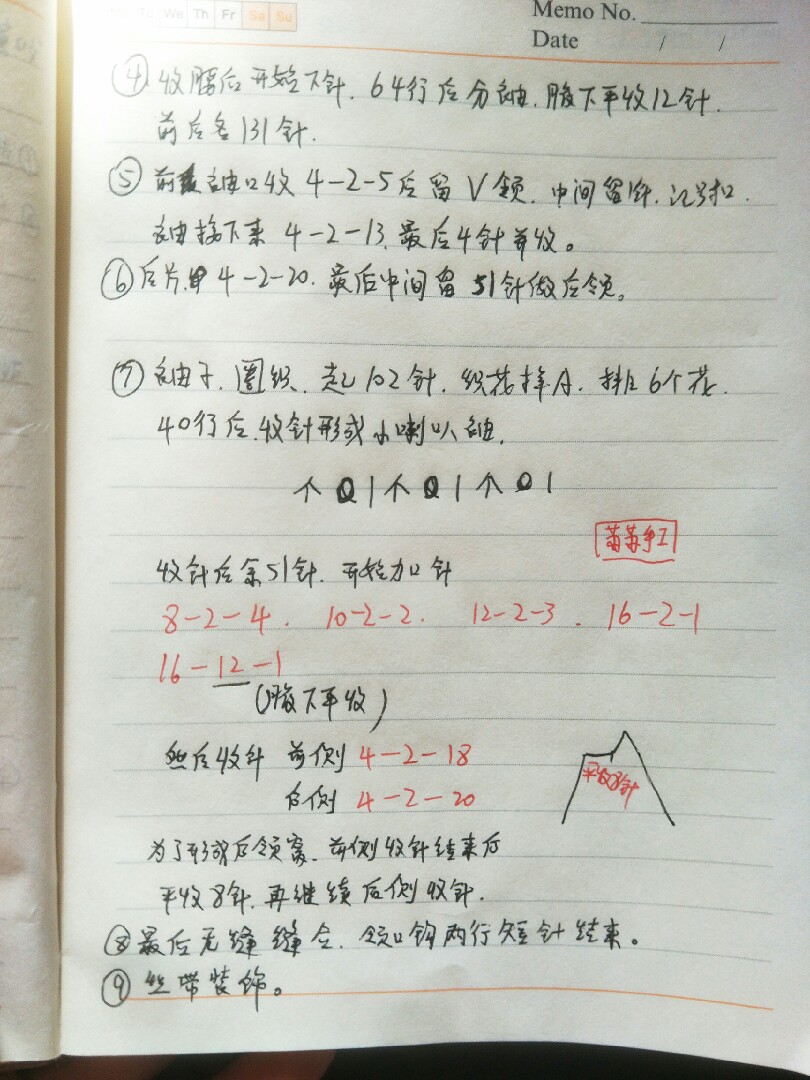 We Th Fr Sa Su
Memo No.
Date / /
④ 收腰后开始下针. 64行后分袖. 腋下平收12针.
前后各131针.
⑤ 前袖口收 4-2-5后留V领. 中间留1针. 记号扣.
袖接下来 4-2-13, 最后4针并收。
⑥ 后片. 4-2-20. 最后中间留51针做后领。
⑦ 袖子. 圈织. 起102针. 织花样A. 排6个花.
40行后. 收针形成小喇叭袖.
个 O | 个 O | 个 O |
苗苗手工
收针后余51针. 开始加针
8-2-4. 10-2-2. 12-2-3. 16-2-1
16-12-1
(腋下平收)
然后收针 前侧 4-2-18
平收8针
后侧 4-2-20
为了形成后领窝. 前侧收针结束后
平收8针. 再继续后侧收针.
⑧ 最后无缝缝合. 领口钩两行短针结束。
⑨ 丝带装饰。